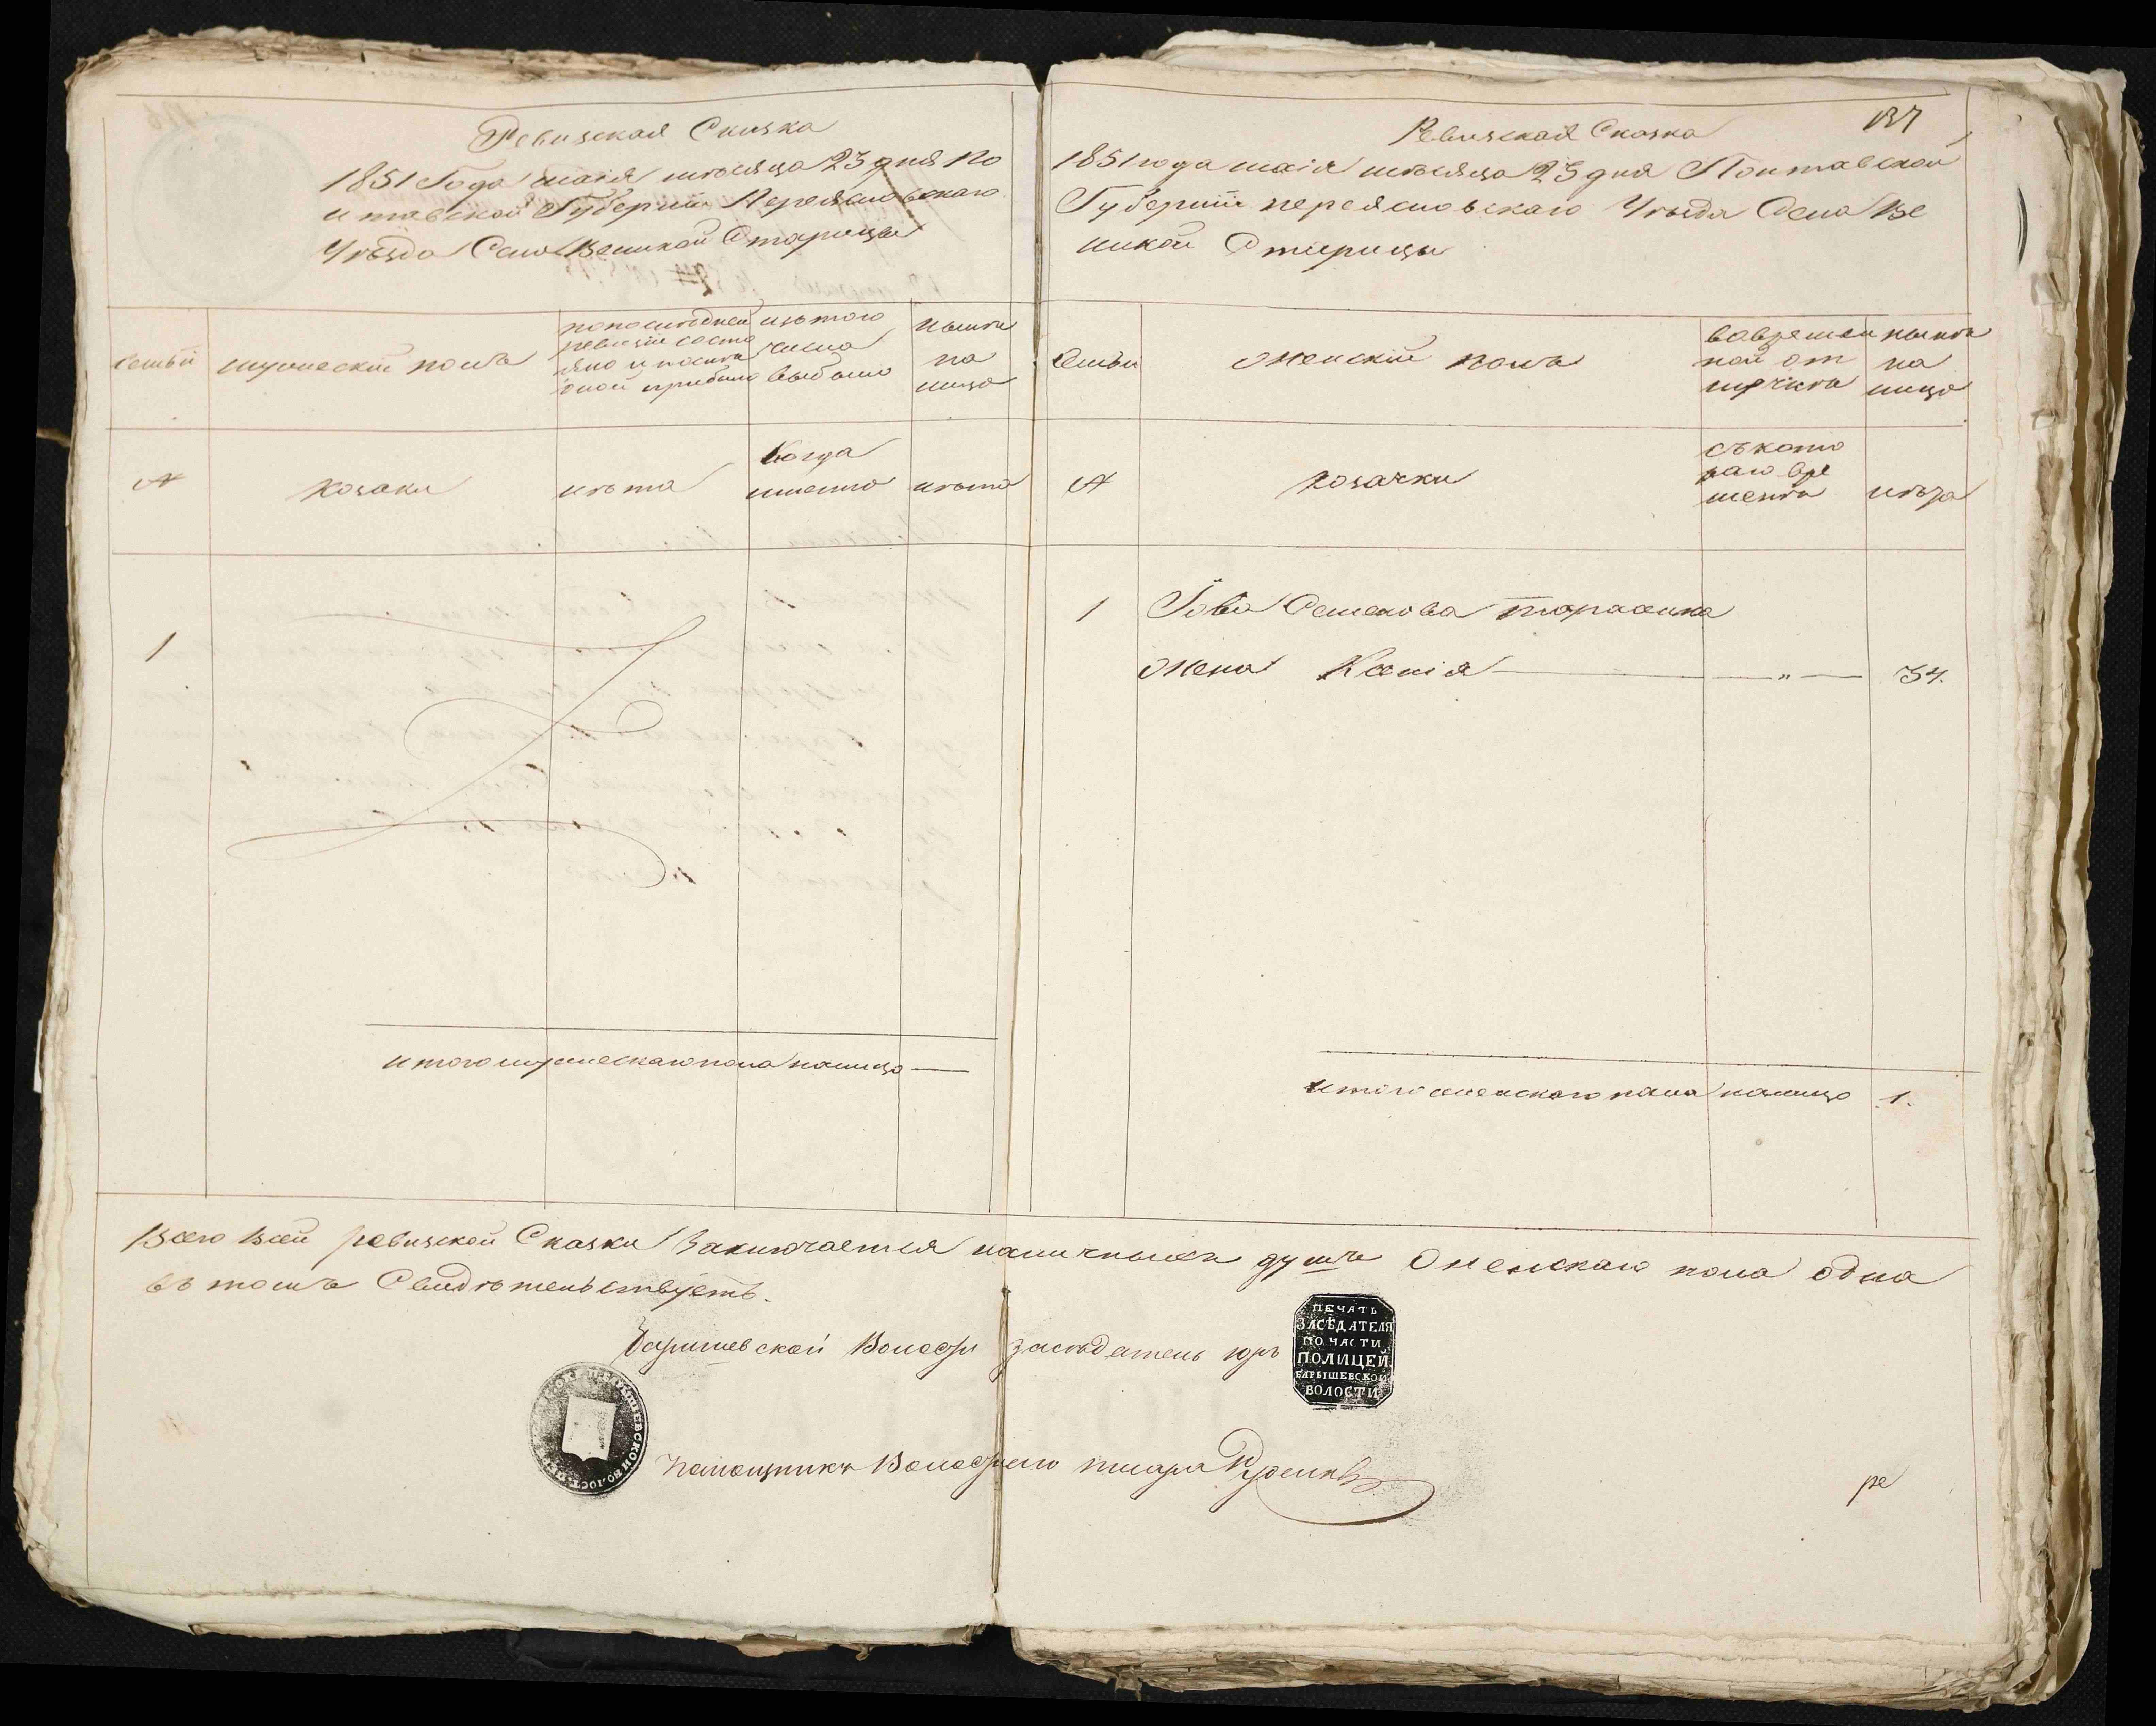 Ревизская Сказка
1851 Года маія мѣсяца 23 дня По
лтавской Губерніи Переяславскаго
Уѣзда Села Великой Старицы
семьи
мужескій полъ
попослѣдней
ревизіи состо
яло и послѣ
оной прибыло
изътого
числа
выбыло
нынѣ
на
лицо
№
козаки
лѣта
Когда
именно
лѣта
1
итого мужескаго пола налицо —
137
Ревизская Сказка
1851 года маія мѣсяца 23 дня Полтавской
Губерніи переяславскаго Уѣзда Села Ве
ликой Старицы
Семьи
женскій полъ
вовремен
ной от
лучкѣ
нынѣ
на
лицо
№
козачки
съкото
раго вре
мени
лѣта
1 Іова Семенова
жена Ксенія — " — 54.
итого женскаго пола налицо 1.
Всего всей ревизской Сказки Заключается наличныхъ душъ Женскаго пола одна
въ томъ Свидѣтельствуетъ.
Барышевской Волости засѣдатель
ПЕЧАТЬ
ЗАСѢДАТЕЛЯ
ПО ЧАСТИ
ПОЛИЦЕЙ.
БАРЫШЕВСКОЙ
ВОЛОСТИ
Помощникъ Волостнаго писаря Руденко
ре